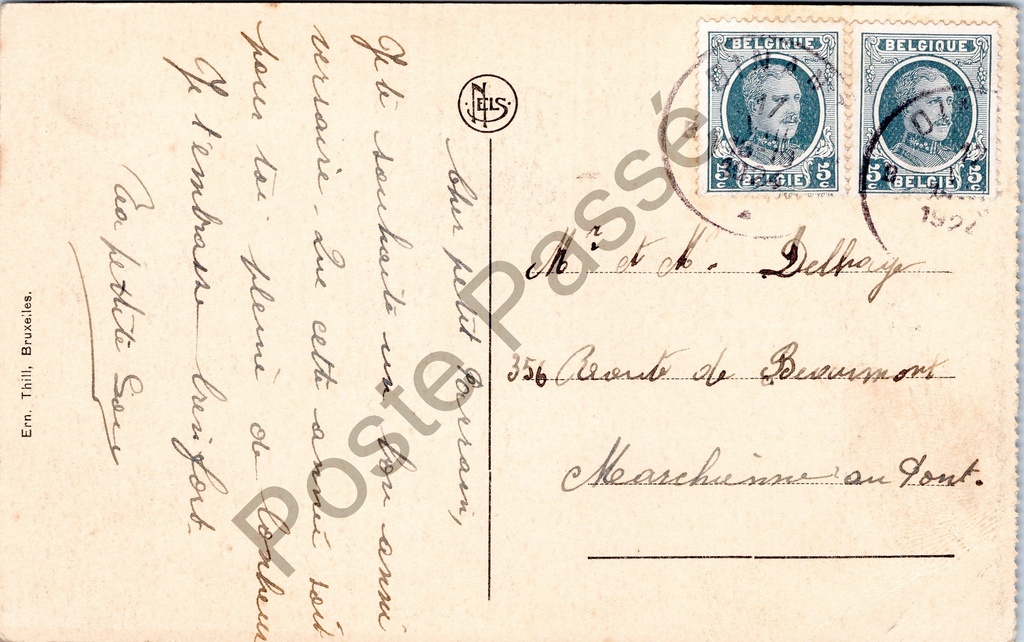 Cher petit Parrain,
Je te souhaite un bon anni
versaire. Que cette année soit
pour toi pleine de bonheur
Je t'embrasse bien fort.
Ta petite
NELS
Ern. Thill, Bruxelles.
BELGIQUE
5c BELGIË 5c
BELGIQUE
5c BELGIË 5c
DINANT
17
Mr et M. Delhaye
356 Route de Beaumont
Marchienne au Pont.
Poste Passé